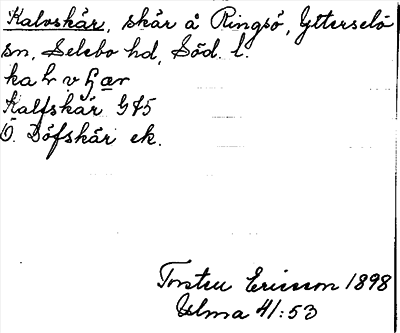 Kalvskär, skär å Ringsö, Ytterselö
sn, Selebo hd, Söd. l.
Kalfskär G45
Ö. Döfskär ek.
Torsten Ericsson 1898
Ulma 41:53